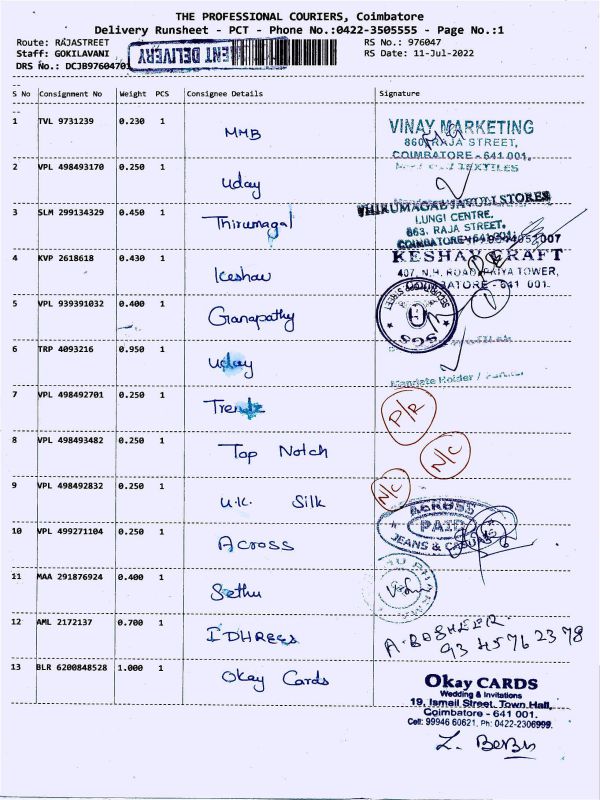 THE PROFESSIONAL COURIERS, Coimbatore
Delivery Runsheet - PCT - Phone No.:0422-3505555 - Page No.:1
Route: RAJASTREET RS No.: 976047
Staff: GOKILAVANI RS Date: 11-Jul-2022
DRS No.: DCJB97604701
DELIVERY
S No Consignment No Weight PCS Consignee Details Signature
1 TVL 9731239 0.230 1 MMB
VINAY MARKETING
860, RAJA STREET,
COIMBATORE - 641 001.
2 VPL 498493170 0.250 1 Uday
TEXTILES
3 SLM 299134329 0.450 1 Thirumagal
THIRUMAGAL JAVULI STORES
LUNGI CENTRE,
863, RAJA STREET,
4 KVP 2618618 0.430 1 Keshav
KESHAV CRAFT
5 VPL 939391032 0.400 1 Ganapathy
SGS
6 TRP 4093216 0.950 1 Uday
Mandate Holder /
7 VPL 498492701 0.250 1 Trendz
P/R
8 VPL 498493482 0.250 1 Top Notch
N/C
9 VPL 498492832 0.250 1 U.K. Silk
N/C
10 VPL 499271104 0.250 1 Across
ACROSS
PAID
JEANS & CASUALS
11 MAA 291876924 0.400 1 Sethu
12 AML 2172137 0.700 1 IDHREES
A. BOSHEER
93 4576 2378
13 BLR 6200848528 1.000 1 Okay Cards
Okay CARDS
Wedding & Invitations
19, Ismail Street, Town Hall,
Coimbatore - 641 001.
Cell: 99946 60621. Ph: 0422-2306999.